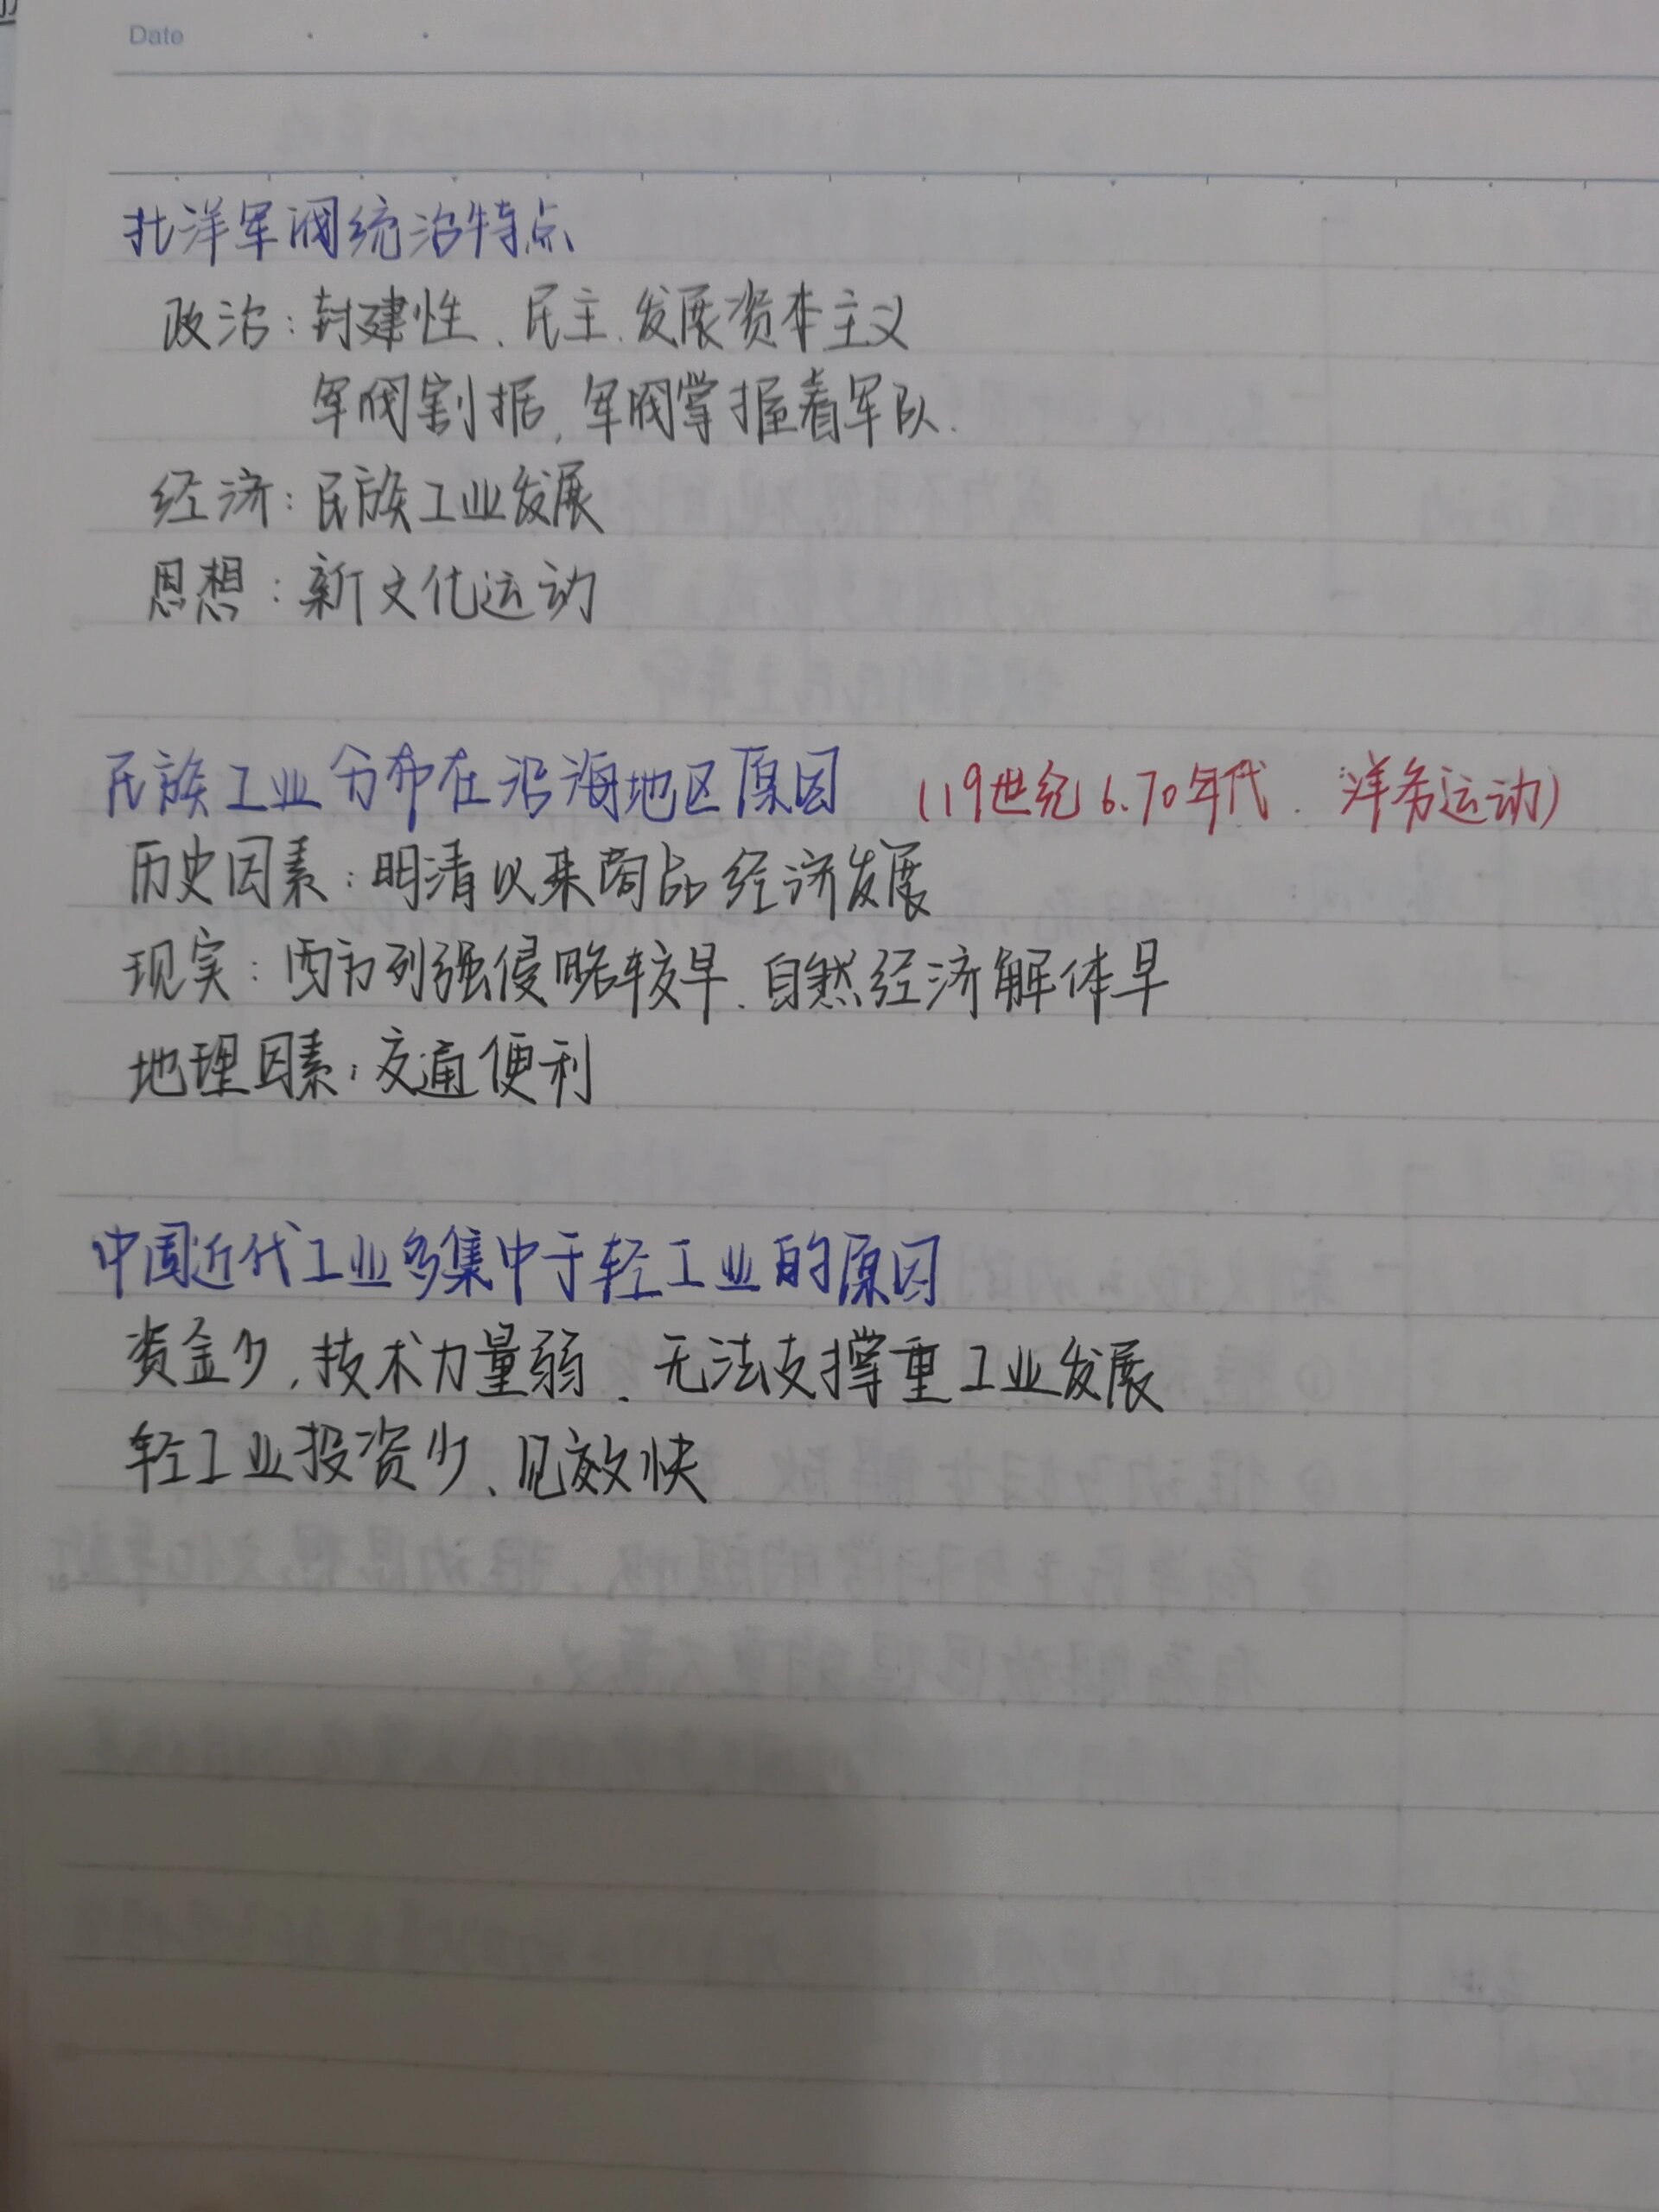 Date
北洋军阀统治特点
政治：封建性、民主、发展资本主义
军阀割据，军阀掌握着军队.
经济：民族工业发展
思想：新文化运动
民族工业分布在沿海地区原因 (19世纪6.70年代. 洋务运动)
历史因素：明清以来商品经济发展
现实：因为列强侵略较早、自然经济解体早
地理因素：交通便利
中国近代工业多集中于轻工业的原因
资金少，技术力量弱、无法支撑重工业发展
轻工业投资少、见效快